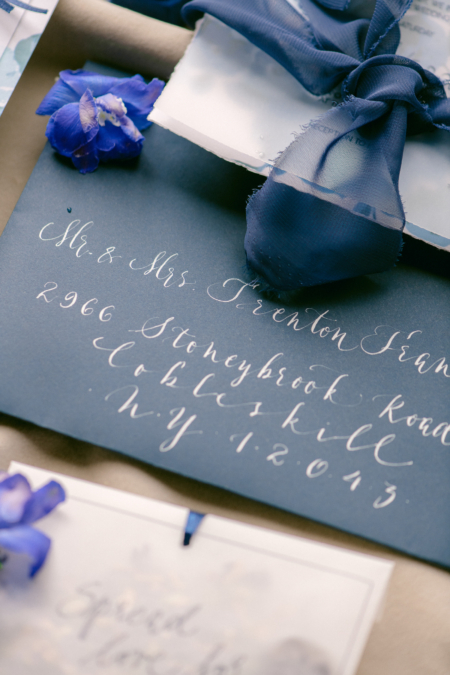 Mr. & Mrs. Trenton Fran
2966 Stoneybrook Road
Cobleskill
NY 12043
Spread
love